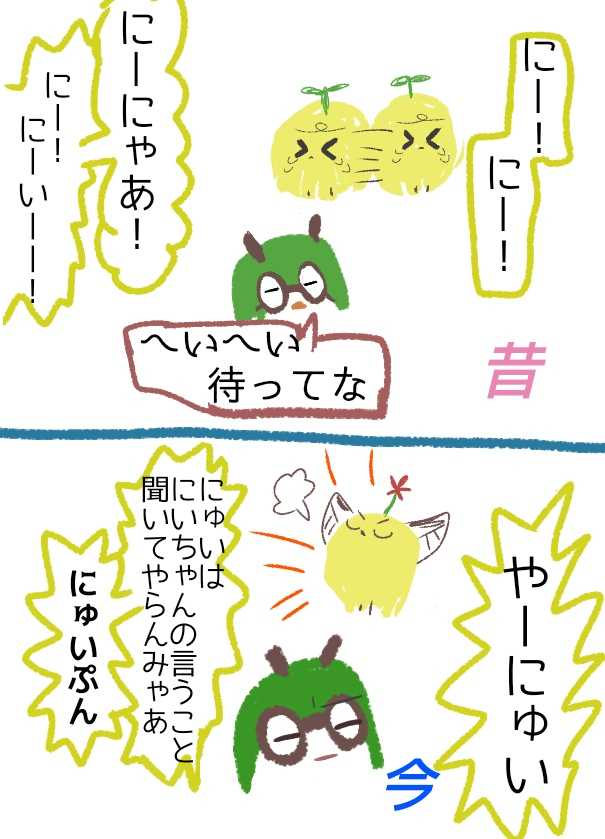 にー！
にー！
にーにゃあ！
にー！
にーいーー！
へいへい
待ってな
昔
やーにゅい
にゅいは
にいちゃんの言うこと
聞いてやらんみゃあ
にゅいぷん
今